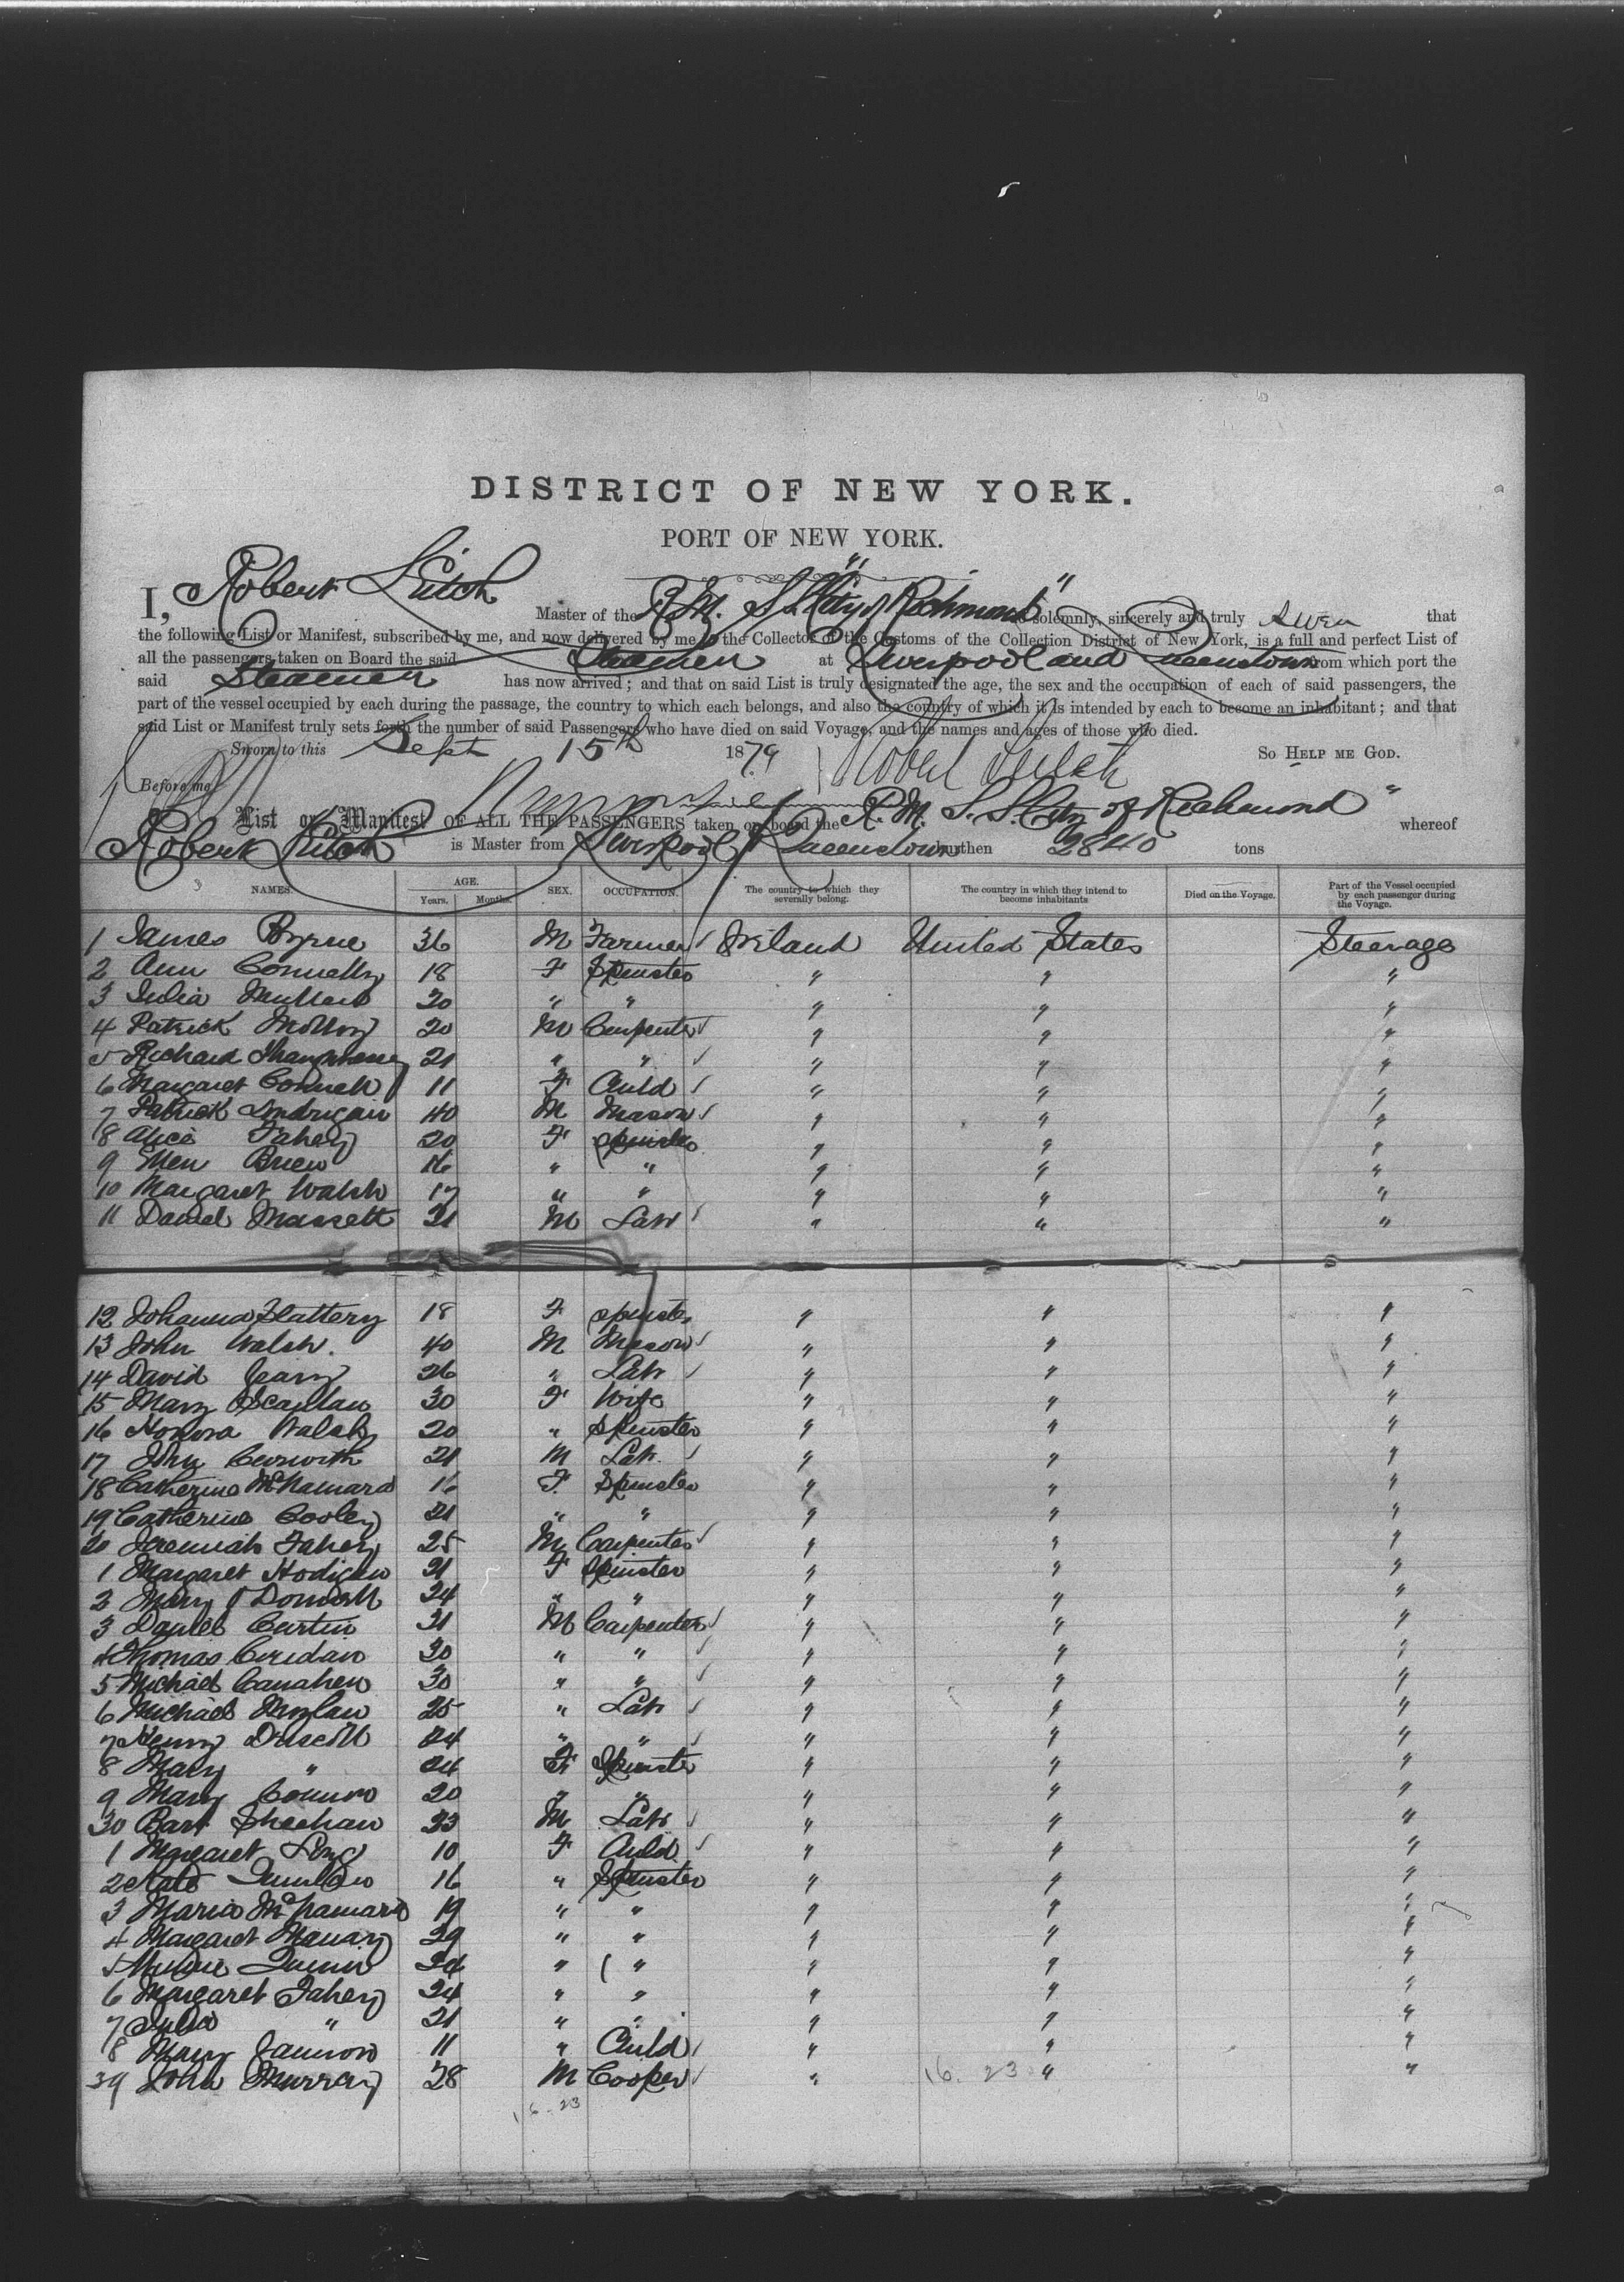 DISTRICT OF NEW YORK.
PORT OF NEW YORK.
I, Robert Leitch Master of the R. M. S. S. "City of Richmond" solemnly, sincerely and truly swear that
the following List or Manifest, subscribed by me, and now delivered by me to the Collector of the Customs of the Collection District of New York, is a full and perfect List of
all the passengers taken on Board the said Steamer at Liverpool and Queenstown from which port the
said Steamer has now arrived; and that on said List is truly designated the age, the sex and the occupation of each of said passengers, the
part of the vessel occupied by each during the passage, the country to which each belongs, and also the country of which it is intended by each to become an inhabitant; and that
said List or Manifest truly sets forth the number of said Passengers who have died on said Voyage, and the names and ages of those who died.
Sworn to this Sept 15th 1879 Robert Leitch So HELP ME GOD.
Before me
List or Manifest OF ALL THE PASSENGERS taken on board the R. M. S. S. City of Richmond " whereof
Robert Leitch is Master from Liverpool & Queenstown burthen 2840 tons
NAMES. AGE. Years. Months. SEX. OCCUPATION. The country to which they severally belong. The country in which they intend to become inhabitants Died on the Voyage. Part of the Vessel occupied by each passenger during the Voyage.
1 James Byrne 36 M Farmer Ireland United States Steerage
2 Ann Connelly 18 F Spinster " " "
3 Julia Mullen 20 " " " " "
4 Patrick Molloy 20 M Carpenter " " "
5 Richard Shaughnessy 21 " " " " "
6 Margaret Connell 11 F Child " " "
7 Patrick Londrigan 40 M Mason " " "
8 Alice Fahey 20 F Spinster " " "
9 Brien 16 " " " " "
10 Margaret Walsh 17 " " " " "
11 Daniel Massett 21 M Labr " " "
12 Johanna Slattery 18 F Spinster " " "
13 John Walsh. 40 M Mason " " "
14 David Geary 26 " Labr " " "
15 Mary Scanlan 30 F Wife " " "
16 Honora Walsh 20 " Spinster " " "
17 John 21 M Labr " " "
18 Catherine McNamara 16 F. Spinster " " "
19 Catherine Cooley 21 " " " " "
20 Jeremiah Fahey 25 M Carpenter " " "
1 Margaret Hodigan 21 F Spinster " " "
2 Mary O'Donnell 24 " " " " "
3 Daniel Curtin 21 M Carpenter " " "
4 Thomas 30 " " " " "
5 Michael Canahen 30 " " " " "
6 Michael Moylan 25 " Labr " " "
7 Henry Driscoll 24 " " " " "
8 Mary " 24 F Spinster " " "
9 Mary Connors 20 " " " " "
30 Bart Sheehan 33 M Labr " " "
1 Margaret Long 10 F Child " " "
2 Kate Quinlan 16 " Spinster " " "
3 Maria McNamara 19 " " " " "
4 Margaret 29 " " " " "
5 Quinn 24 " " " " "
6 Margaret Fahey 24 " " " " "
7 Julia " 21 " " " " "
8 Mary 11 " Child " " "
39 John Murray 28 M Cooper " 16. 23 " "
16-23